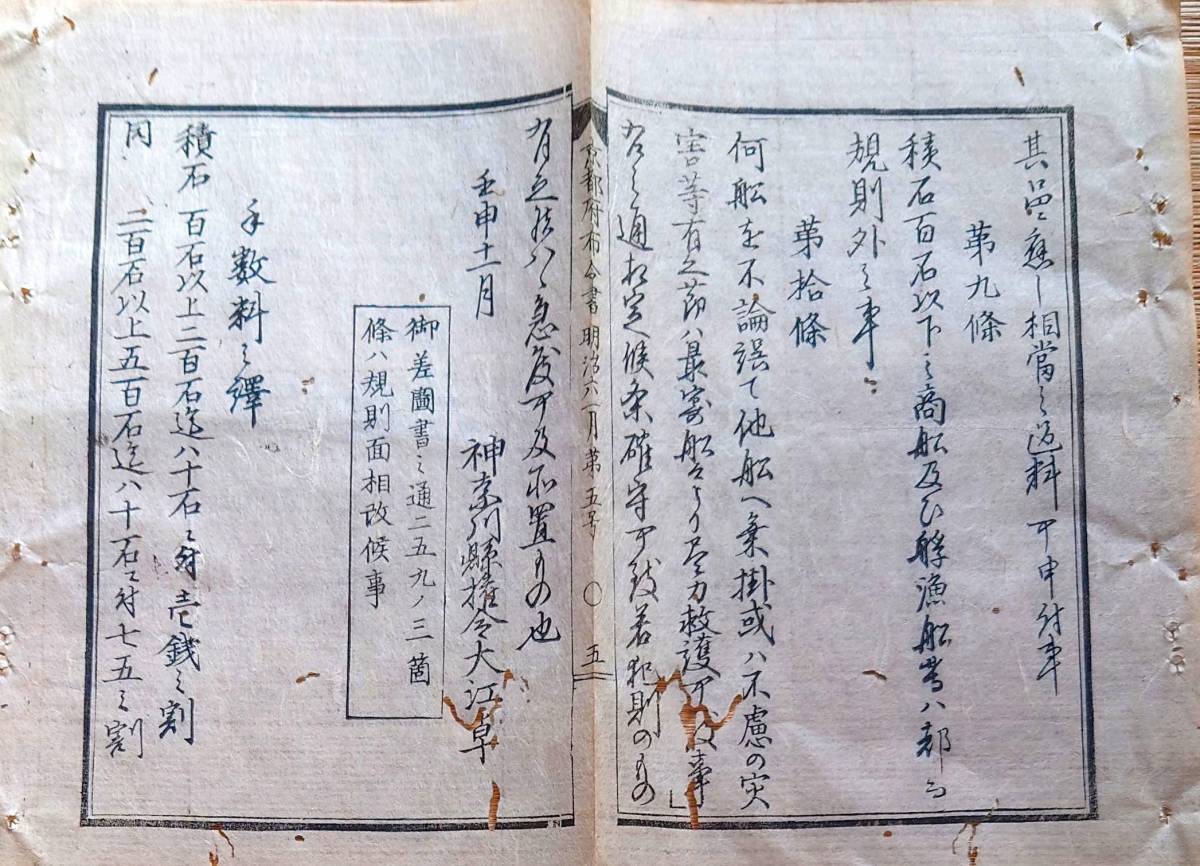 其品ニ應シ相當之過料可申付事
第九條
積石百石以下之商船及ひ艀漁船等ハ都而
規則外之事
第拾條
何船を不論誤て他船へ乗掛或ハ不慮の灾
害等有之節ハ最寄船々より尽力救護可致事」
右之通相定候条確守可致若犯則のもの
京都府布令書明治六年一月第五号 〇 五
有之候ハヽ急度可及処置もの也
壬申十一月
神奈川縣権令大江卓
御差圖書之通二五九ノ三箇
條ハ規則面相改候事
手数料之繹
積石 百石以上二百石迄ハ十石ニ付壱銭之割
同 二百石以上五百石迄ハ十石ニ付七五之割